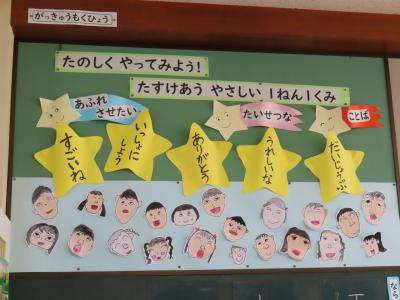 がっきゅうもくひょう
たのしく やってみよう!
たすけあう やさしい 1ねん1くみ
あふれ
させたい
たいせつな
ことば
すごいね
いっしょに
しよう
ありがとう
うれしいな
だいじょうぶ
なら